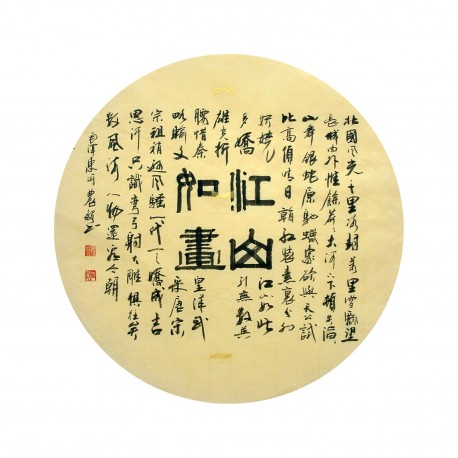 江山
如畫
北國風光千里冰封萬里雪飄望
長城内外惟餘莽莽大河上下頓失滔
山舞銀蛇原馳蠟象欲與天公試
比高須晴日觀紅裝素裹分外
妖嬈江山如此
多嬌引無數英
雄競折
腰惜秦皇漢武
略輸文采唐宗
宗祖稍遜風騷一代天驕成吉
思汗只識彎弓射大雕俱往矣
數風流人物還看今朝
毛澤東詞